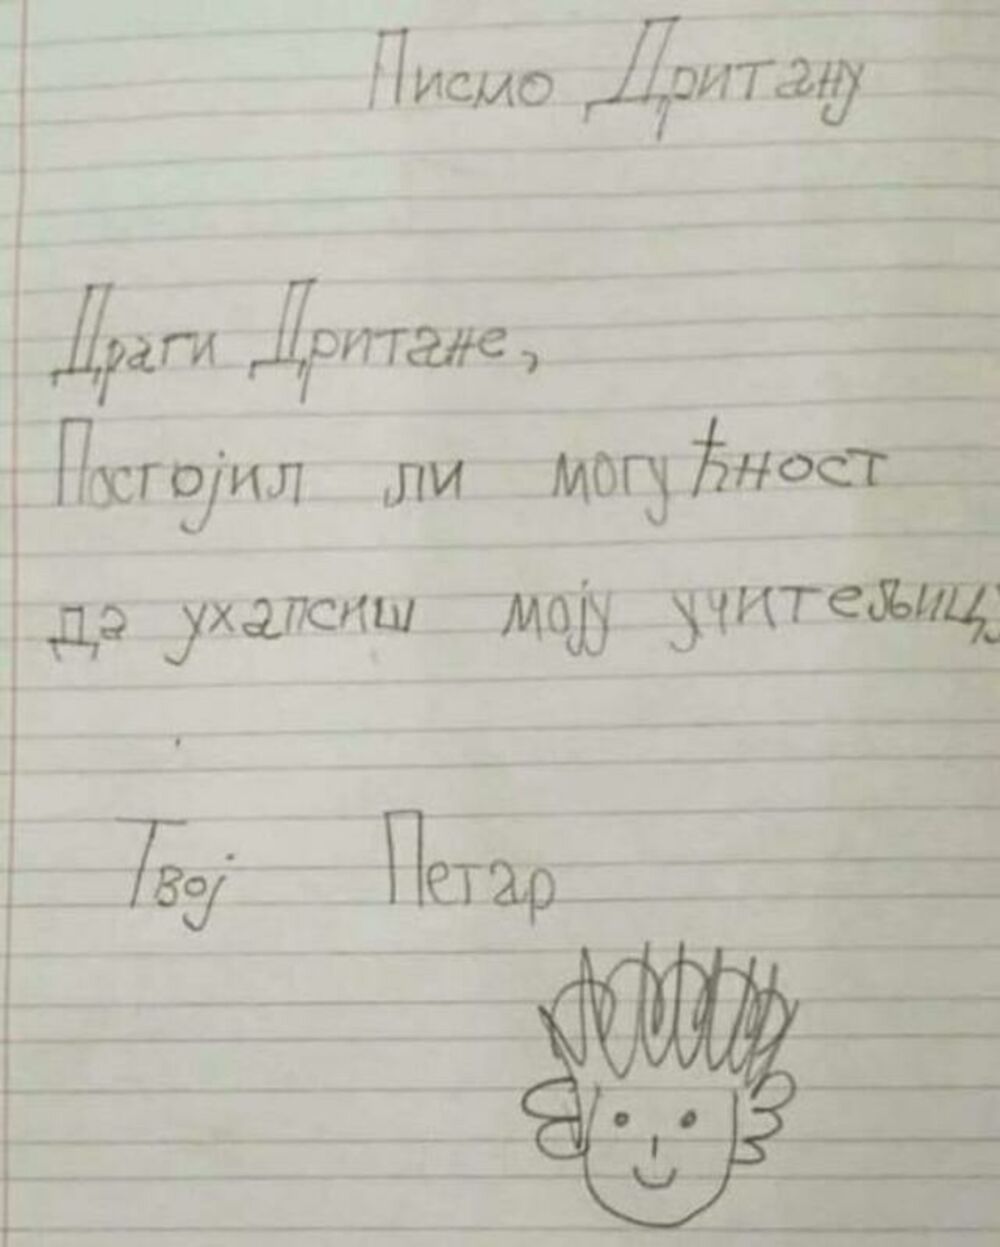 Писмо Дритану
Драги Дритане,
Постојил ли могућност
да ухапсиш моју учитељицу
Твој Петар